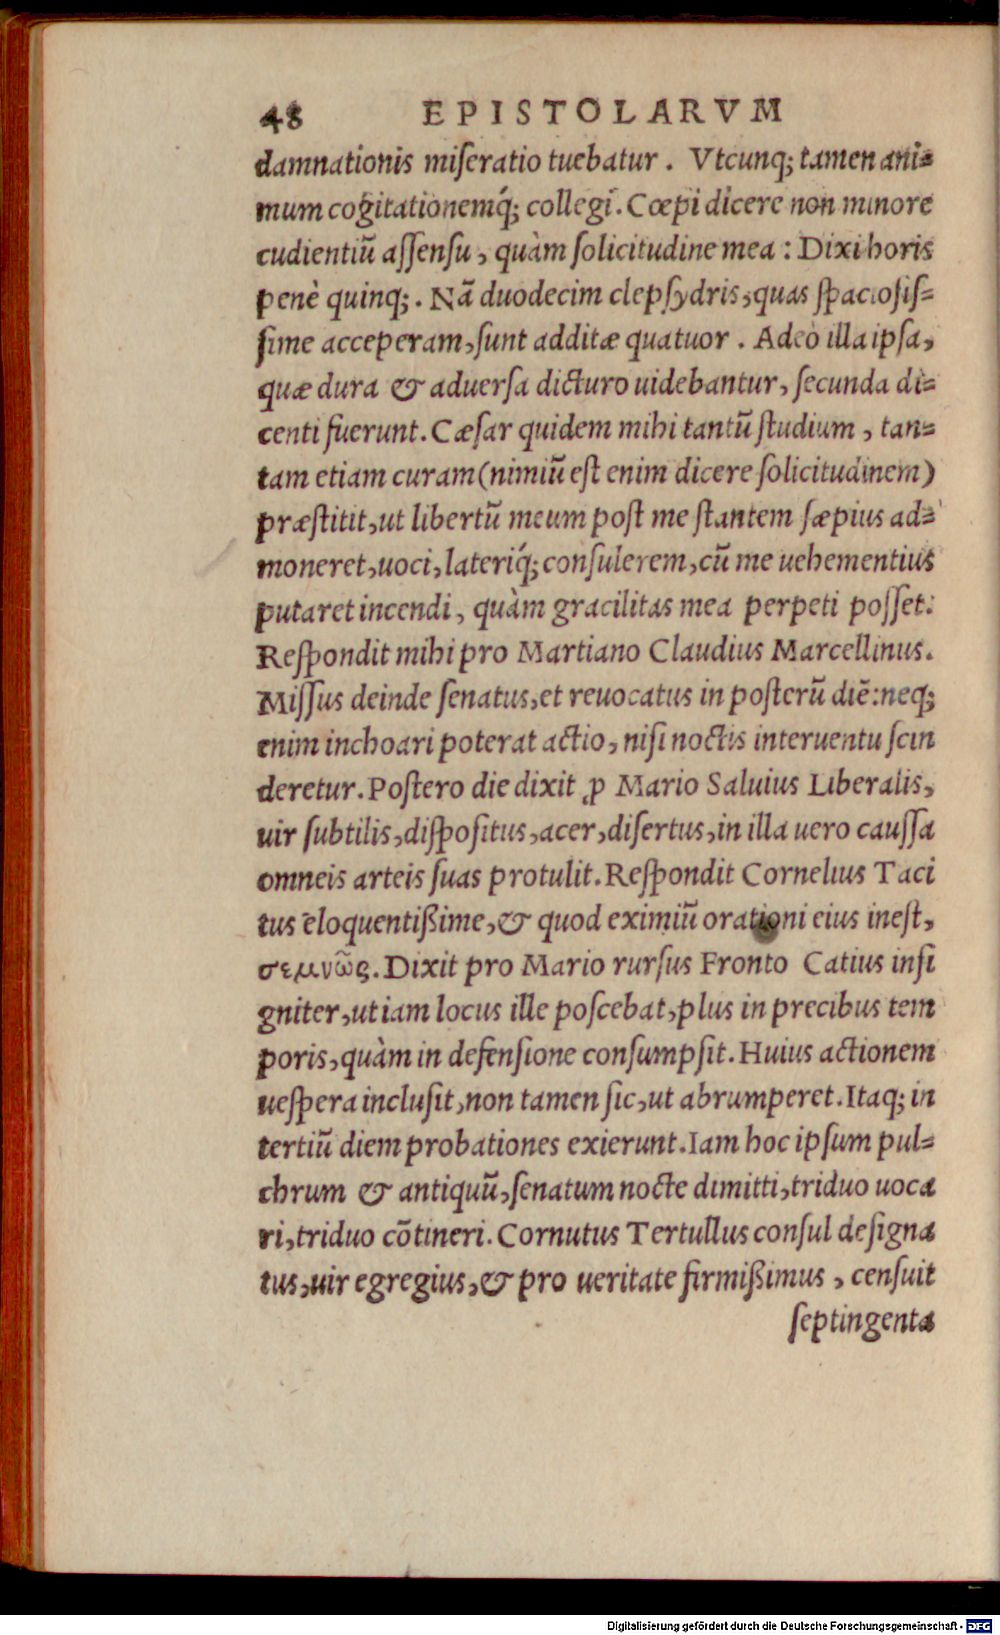 48 EPISTOLARVM
damnationis miſeratio tuebatur. Vtcunq; tamen ani=
mum cogitationemq́; collegi. Cœpi dicere non minore
cudientiū aſſenſu, quàm ſolicitudine mea: Dixi horis
penè quinq;. Nā duodecim clepſydris, quas ſpacioſiſ=
ſime acceperam, ſunt additæ quatuor. Adeò illa ipſa,
quæ dura & aduerſa dicturo uidebantur, ſecunda di=
centi fuerunt. Cæſar quidem mihi tantū ſtudium, tan=
tam etiam curam (nimiū eſt enim dicere ſolicitudinem)
præſtitit, ut libertū meum poſt me ſtantem ſæpius ad=
moneret, uoci, lateriq́; conſulerem, cū me uehementius
putaret incendi, quàm gracilitas mea perpeti poſſet.
Reſpondit mihi pro Martiano Claudius Marcellinus.
Miſſus deinde ſenatus, et reuocatus in poſterū diē: neq;
enim inchoari poterat actio, niſi noctis interuentu ſcin
deretur. Poſtero die dixit ꝓ Mario Saluius Liberalis,
uir ſubtilis, diſpoſitus, acer, diſertus, in illa uero cauſſa
omneis arteis ſuas protulit. Reſpondit Cornelius Taci
tus eloquentißime, & quod eximiū orationi eius ineſt,
σεμνῶς. Dixit pro Mario rurſus Fronto Catius inſi
gniter, ut iam locus ille poſcebat, plus in precibus tem
poris, quàm in defenſione conſumpſit. Huius actionem
ueſpera incluſit, non tamen ſic, ut abrumperet. Itaq; in
tertiū diem probationes exierunt. Iam hoc ipſum pul=
chrum & antiquū, ſenatum nocte dimitti, triduo uoca
ri, triduo cōtineri. Cornutus Tertullus conſul deſigna
tus, uir egregius, & pro ueritate firmißimus, cenſuit
ſeptingenta
Digitalisierung gefördert durch die Deutsche Forschungsgemeinschaft - DFG